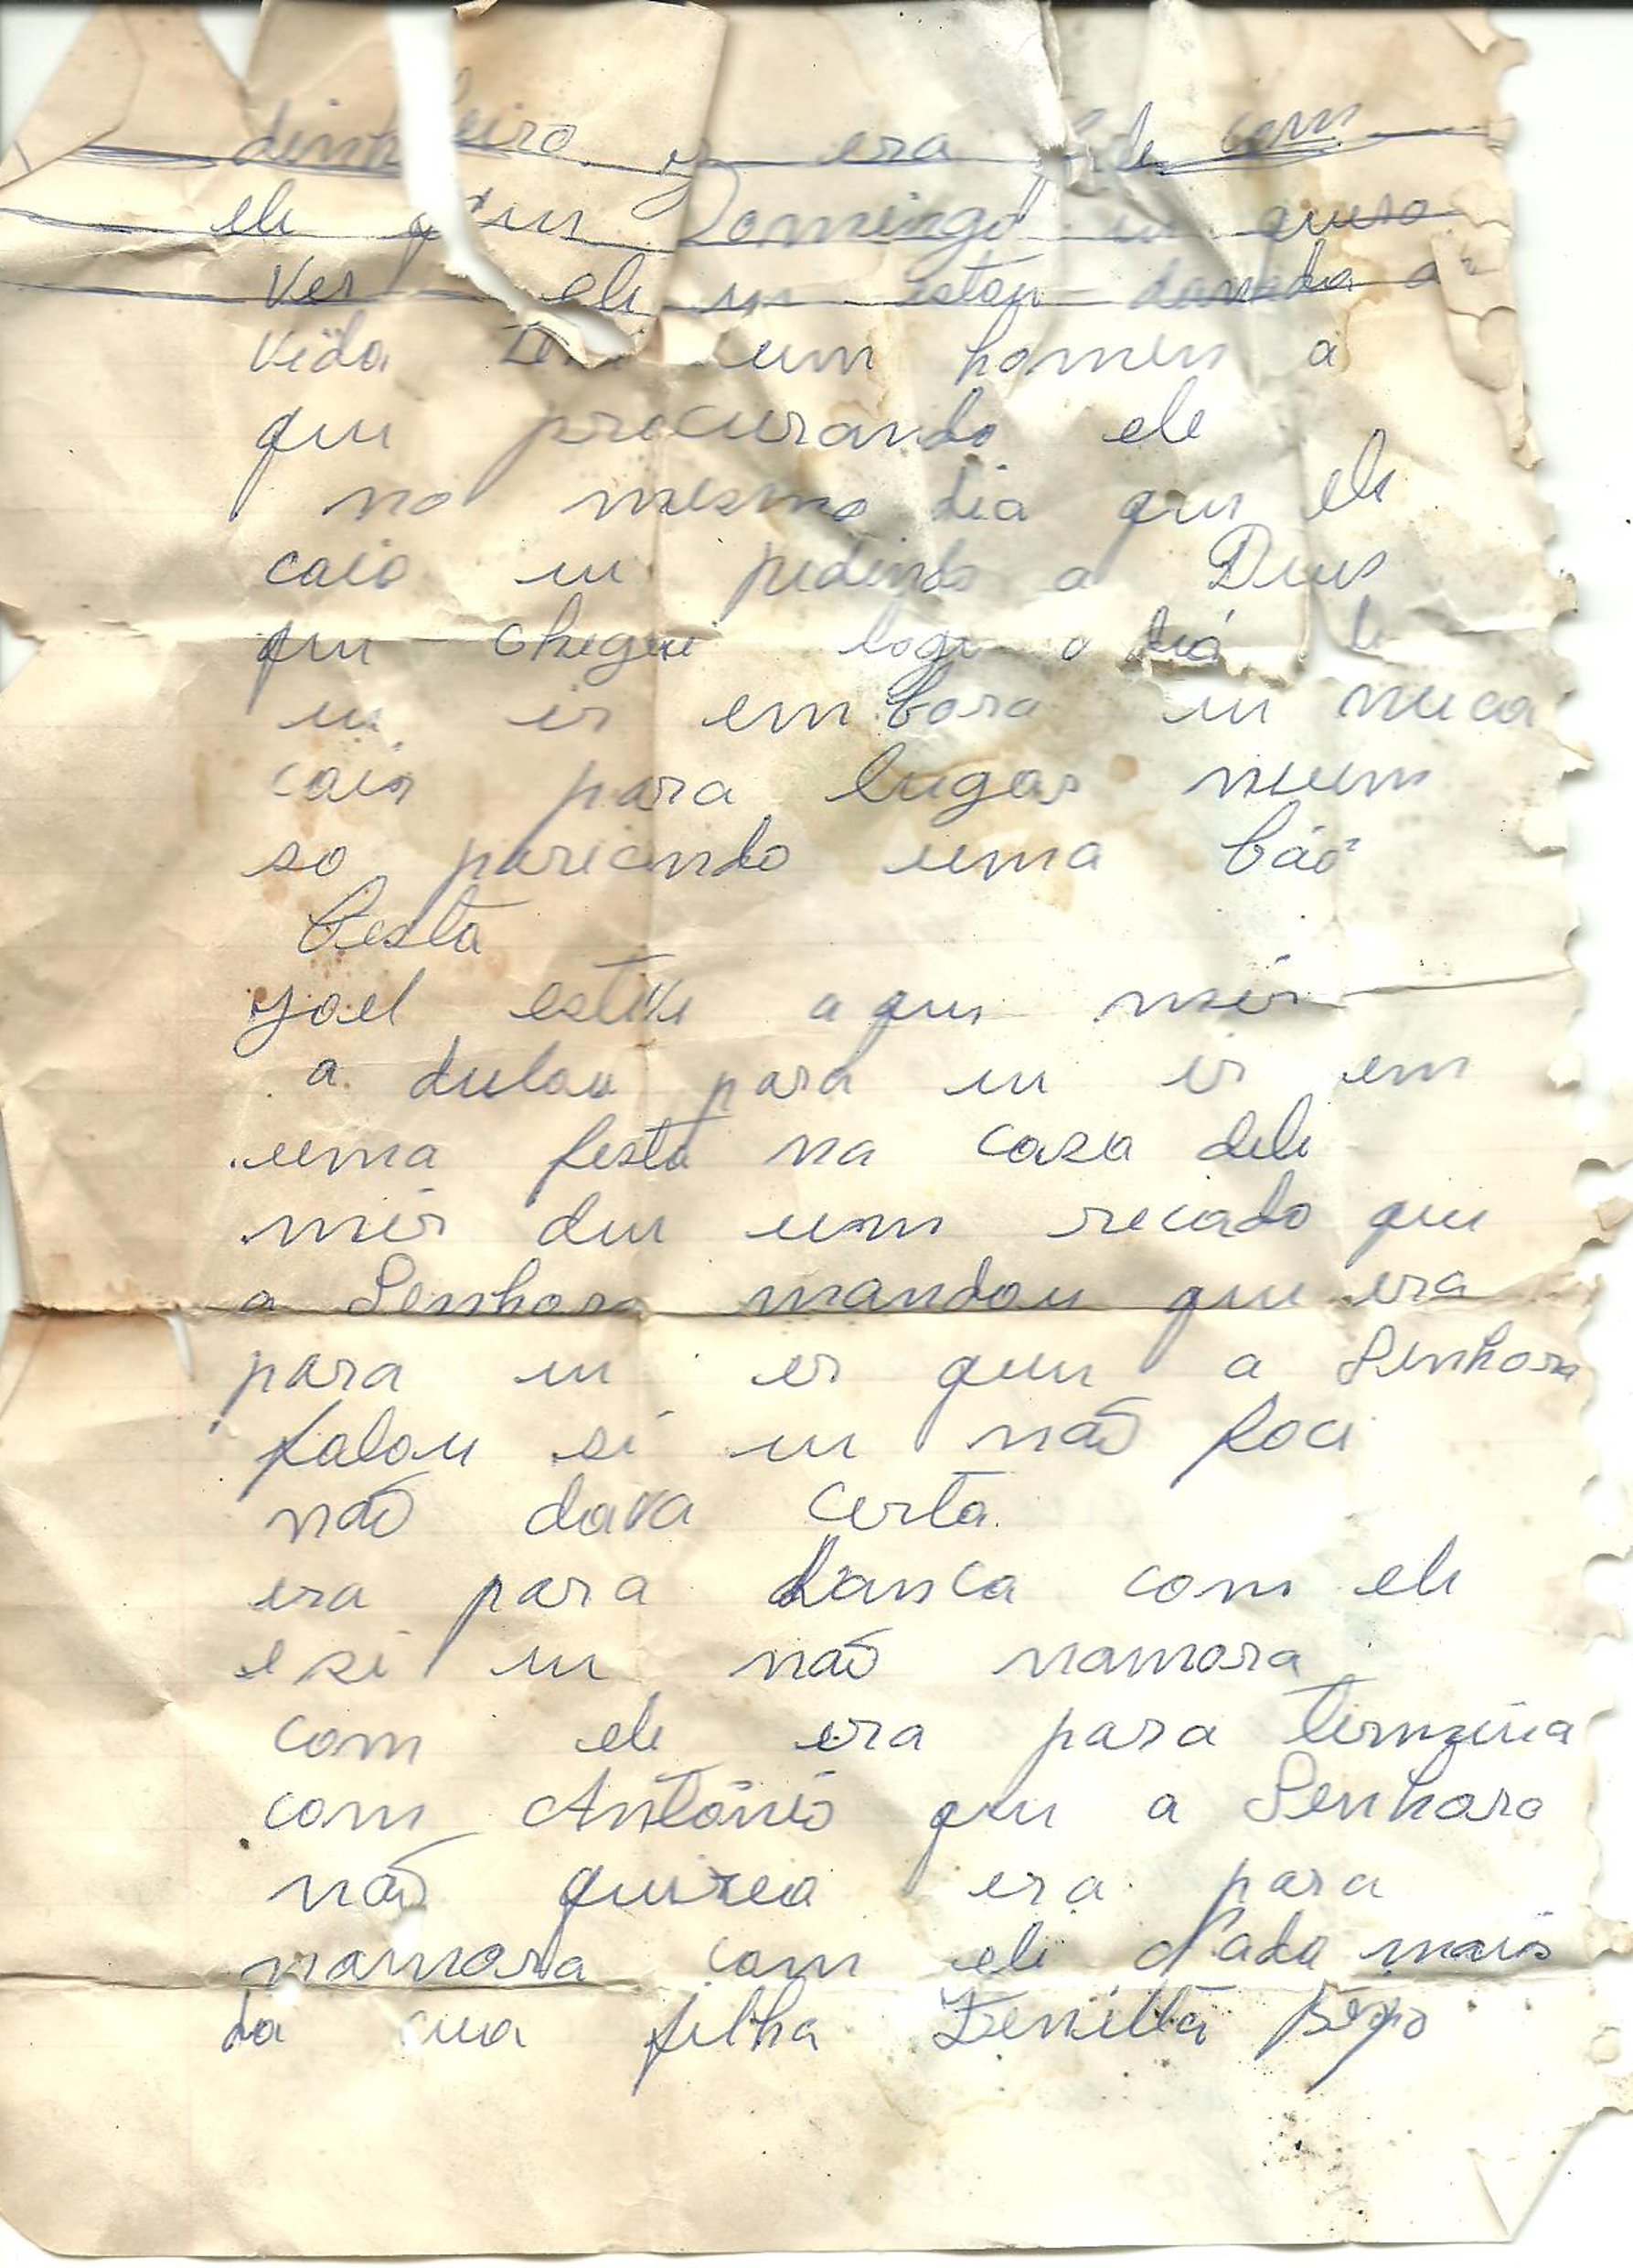 dinheiro era com
ele Domingo eu quero
ver ele estou
vida um homem a
que procurando ele
no mesmo dia que ele
caio eu pedindo a Deus
que chegue logo o diá
eu ir em bora eu nuca
caio para lugar nuum
so parecendo uma báo
besta
Joel estive aqui mir
a dulou para eu ir em
uma festa na casa dele
mir deu um recado que
a Senhora mandou que era
para eu ir que a Senhora
falou si eu não foci
não dava certo.
era para dansa com ele
e si eu não namora
com ele era para termina
com Antônio que a Senhora
não queria era para
namora com ele mais
da sua filha Zenilta